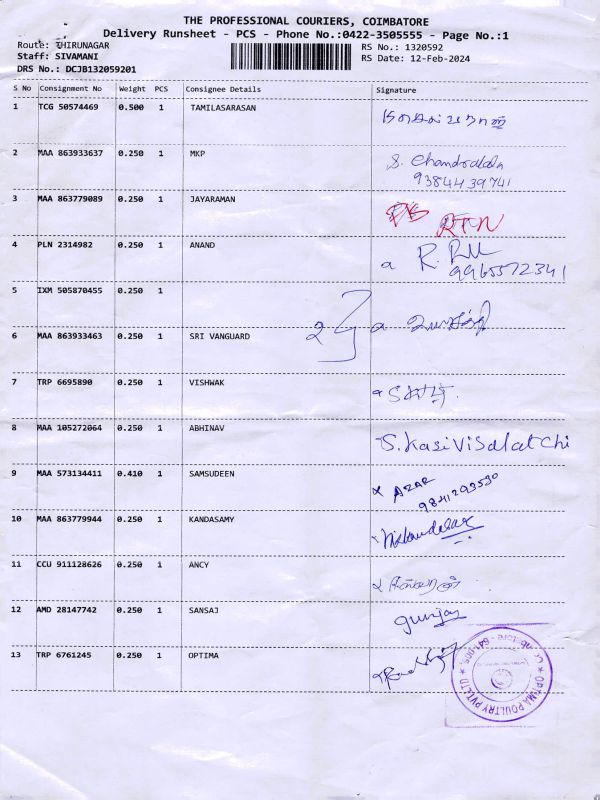 THE PROFESSIONAL COURIERS, COIMBATORE
Delivery Runsheet - PCS - Phone No.:0422-3505555 - Page No.:1
Route: THIRUNAGAR
RS No.: 1320592
Staff: SIVAMANI
RS Date: 12-Feb-2024
DRS No.: DCJB132059201
S No Consignment No Weight PCS Consignee Details Signature
1 TCG 50574469 0.500 1 TAMILASARASAN
2 MAA 863933637 0.250 1 MKP S. Chandrakala
9384439741
3 MAA 863779089 0.250 1 JAYARAMAN RTN
4 PLN 2314982 0.250 1 ANAND R.
9965572341
5 IXM 505870455 0.250 1
2
6 MAA 863933463 0.250 1 SRI VANGUARD
7 TRP 6695890 0.250 1 VISHWAK
8 MAA 105272064 0.250 1 ABHINAV S. Kasivisalatchi
9 MAA 573134411 0.410 1 SAMSUDEEN AZAR
9841293530
10 MAA 863779944 0.250 1 KANDASAMY
11 CCU 911128626 0.250 1 ANCY
12 AMD 28147742 0.250 1 SANSAJ gunjay
13 TRP 6761245 0.250 1 OPTIMA
OPTIMA POULTRY PVT LTD